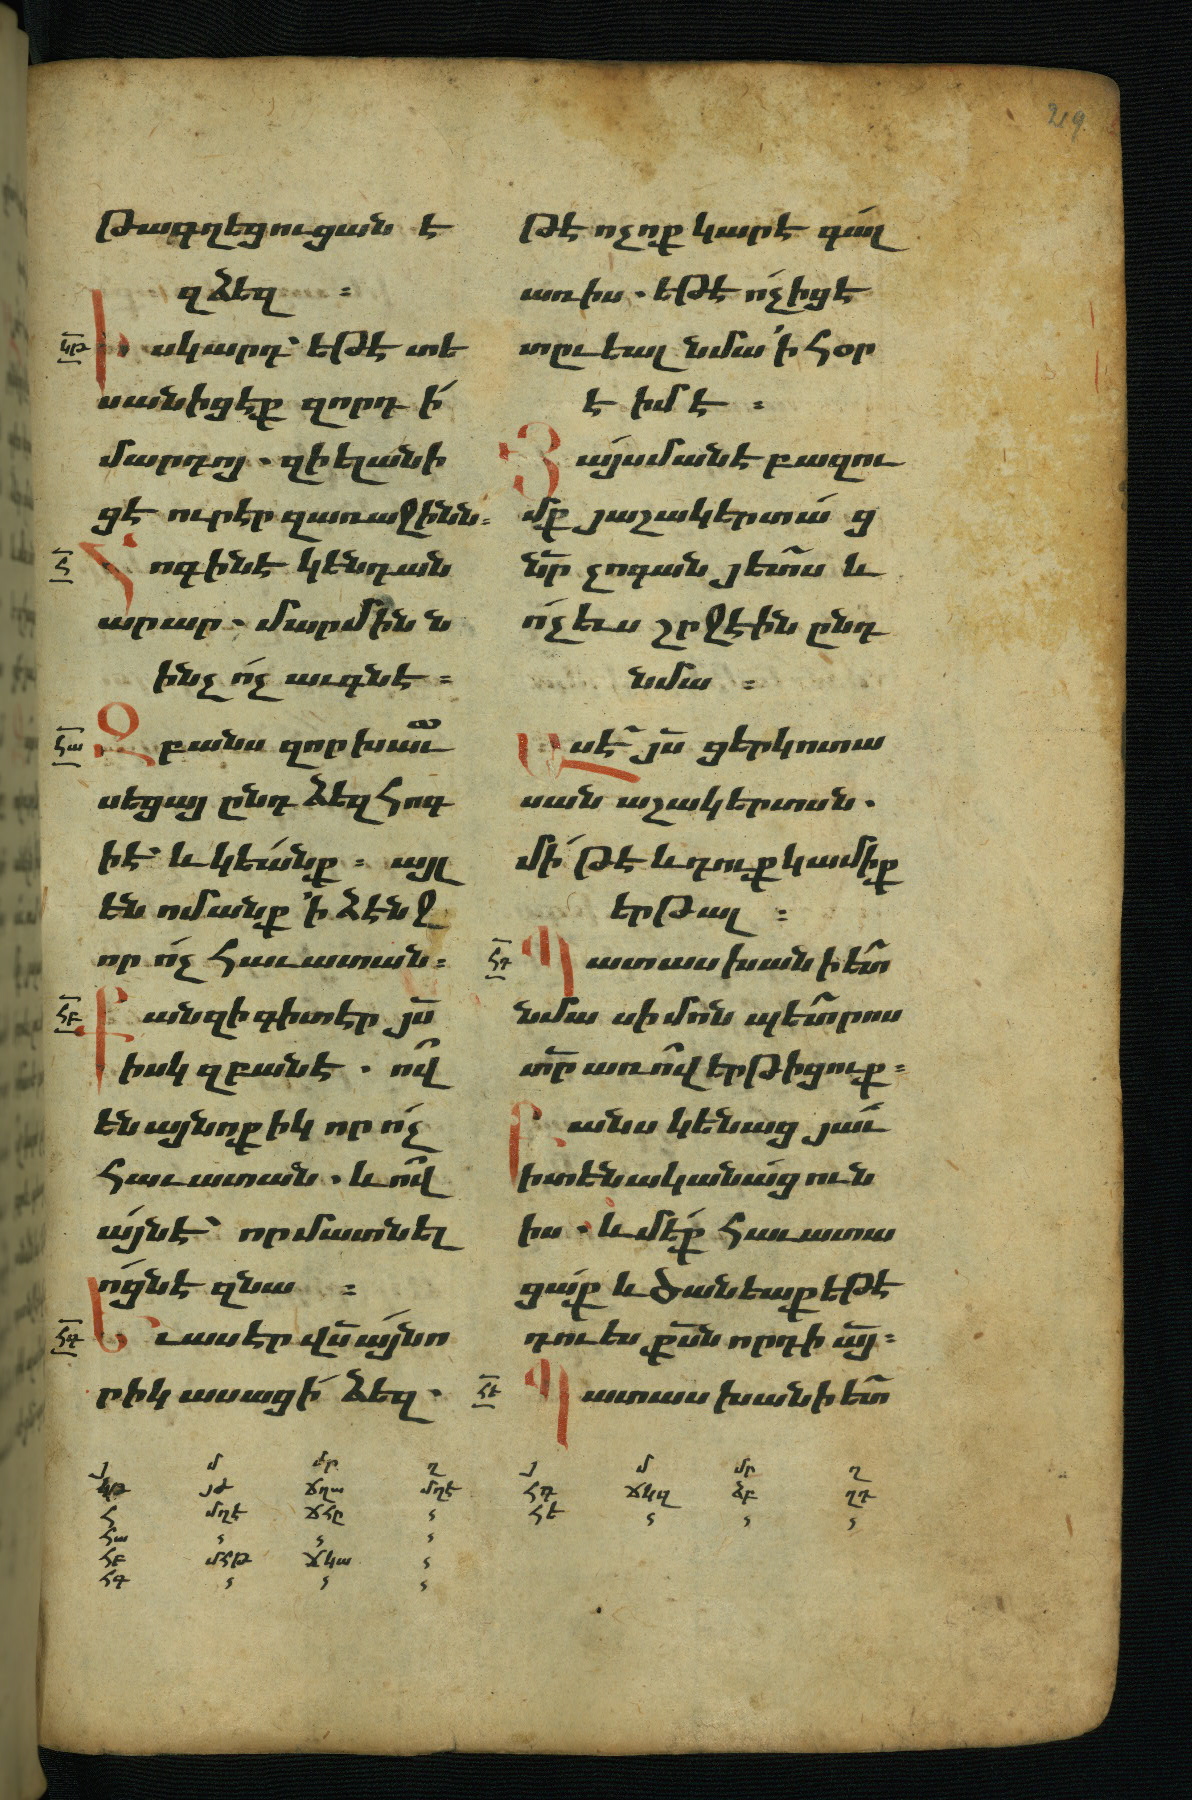 219
թագղեցուցանէ
զձեզ ։
կթ Իսկարդ՝ եթէ տե
սանիցէք զորդի
մարդոյ . զի ելանի
ցէ ուր էր զառաջինն ։
Հ Հոգին է կենդան
արար . մարմինն
ինչ ո՛չ աւգնէ ։
Հա Զբանս զոր խաւ
սեցայ ընդ ձեզ հոգ
ի է՝ և կեանք ։ այլ
են ոմանք ՚ի ձէնջ
որ ո՛չ հաւատան ։
Հբ Քանզի գիտէր յս
իսկզբանէ . ով
են այնոքիկ որ ո՛չ
հաւատան . և ով
այն է՝ որ մատնել
ոցնէ զնա ։
Հգ Եւ ասէր վս այնո
րիկ ասացի ձեզ .
թէ ոչ ոք կարէ գալ
առ իս . եթէ ո՛չ իցէ
տըւեալ նմա ՚ի հօր
է իմէ ։
Յայսմանէ բազու
մք յաշակերտաց
նր չոգան յետս և
ո՛չ ևս շըջէին ընդ
նմա ։
Ասէ յս ցերկոտա
սան աշակերտսն .
մի՛ թէ և դուք կամիք
երթալ ։
Հդ Պատասխանի ետ
նմա սիմոն պետրոս
տր առ ով երթիցուք ։
Բանս կենաց յաւ
իտենականաց ուն
իս . և մեք հաւատա
ցաք և ծանեաք եթէ
դու ես քսն որդի այ ։
Հե Պատասխանի ետ
յ մ մր ղ
կթ յժ ճղա մղէ
Հ մղէ ճհը ,
Հա , , ,
Հբ մհթ ճկա ,
Հգ , , ,
յ մ մր ղ
Հդ ճկզ ձբ ղդ
Հե , , ,